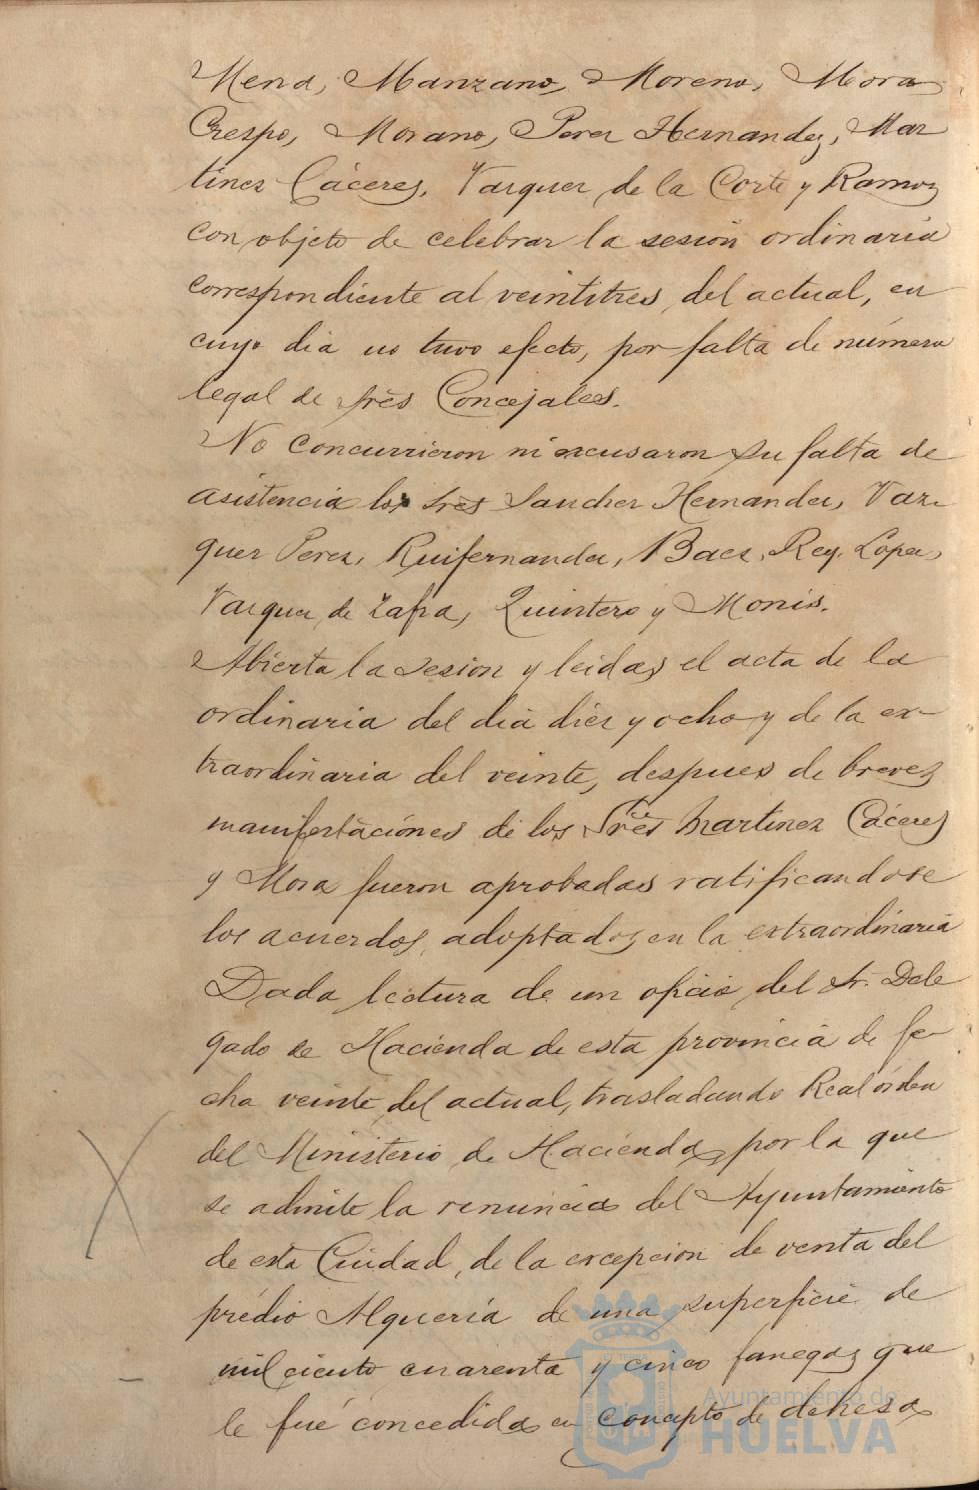 Mena, Manzano, Moreno, Mora
Crespo, Morano, Perez Hernandez, Mar
tinez Cáceres, Vazquez de la Corte y Ramos
con objeto de celebrar la sesion ordinaria
correspondiente al veintitres del actual, en
cuyo dia no tuvo efecto, por falta de número
legal de sres Concejales.
No concurrieron ni excusaron su falta de
asistencia los sres Sanchez Hernandez, Vaz-
quez Perez, Ruifernandez, Baez, Rey, Lopez,
Vazquez de Zafra, Quintero y Monis.
Abierta la sesion y leidas el acta de la
ordinaria del dia diez y ocho y de la ex-
traordinaria del veinte, despues de breves
manifestaciónes de los Sres Martinez Cáceres
y Mora fueron aprobadas ratificandose
los acuerdos adoptados en la extraordinaria
Dada lectura de un oficio del Sr. Dele
gado de Hacienda de esta provincia de fe-
cha veinte del actual, trasladando Real órden
del Ministerio de Hacienda, por la que
se admite la renuncia del Ayuntamiento
de esta Ciudad, de la excepcion de venta del
prédio Alquería de una superficie de
mil ciento cuarenta y cinco fanegas que
le fué concedida en concepto de dehesa
Ayuntamiento de
HUELVA